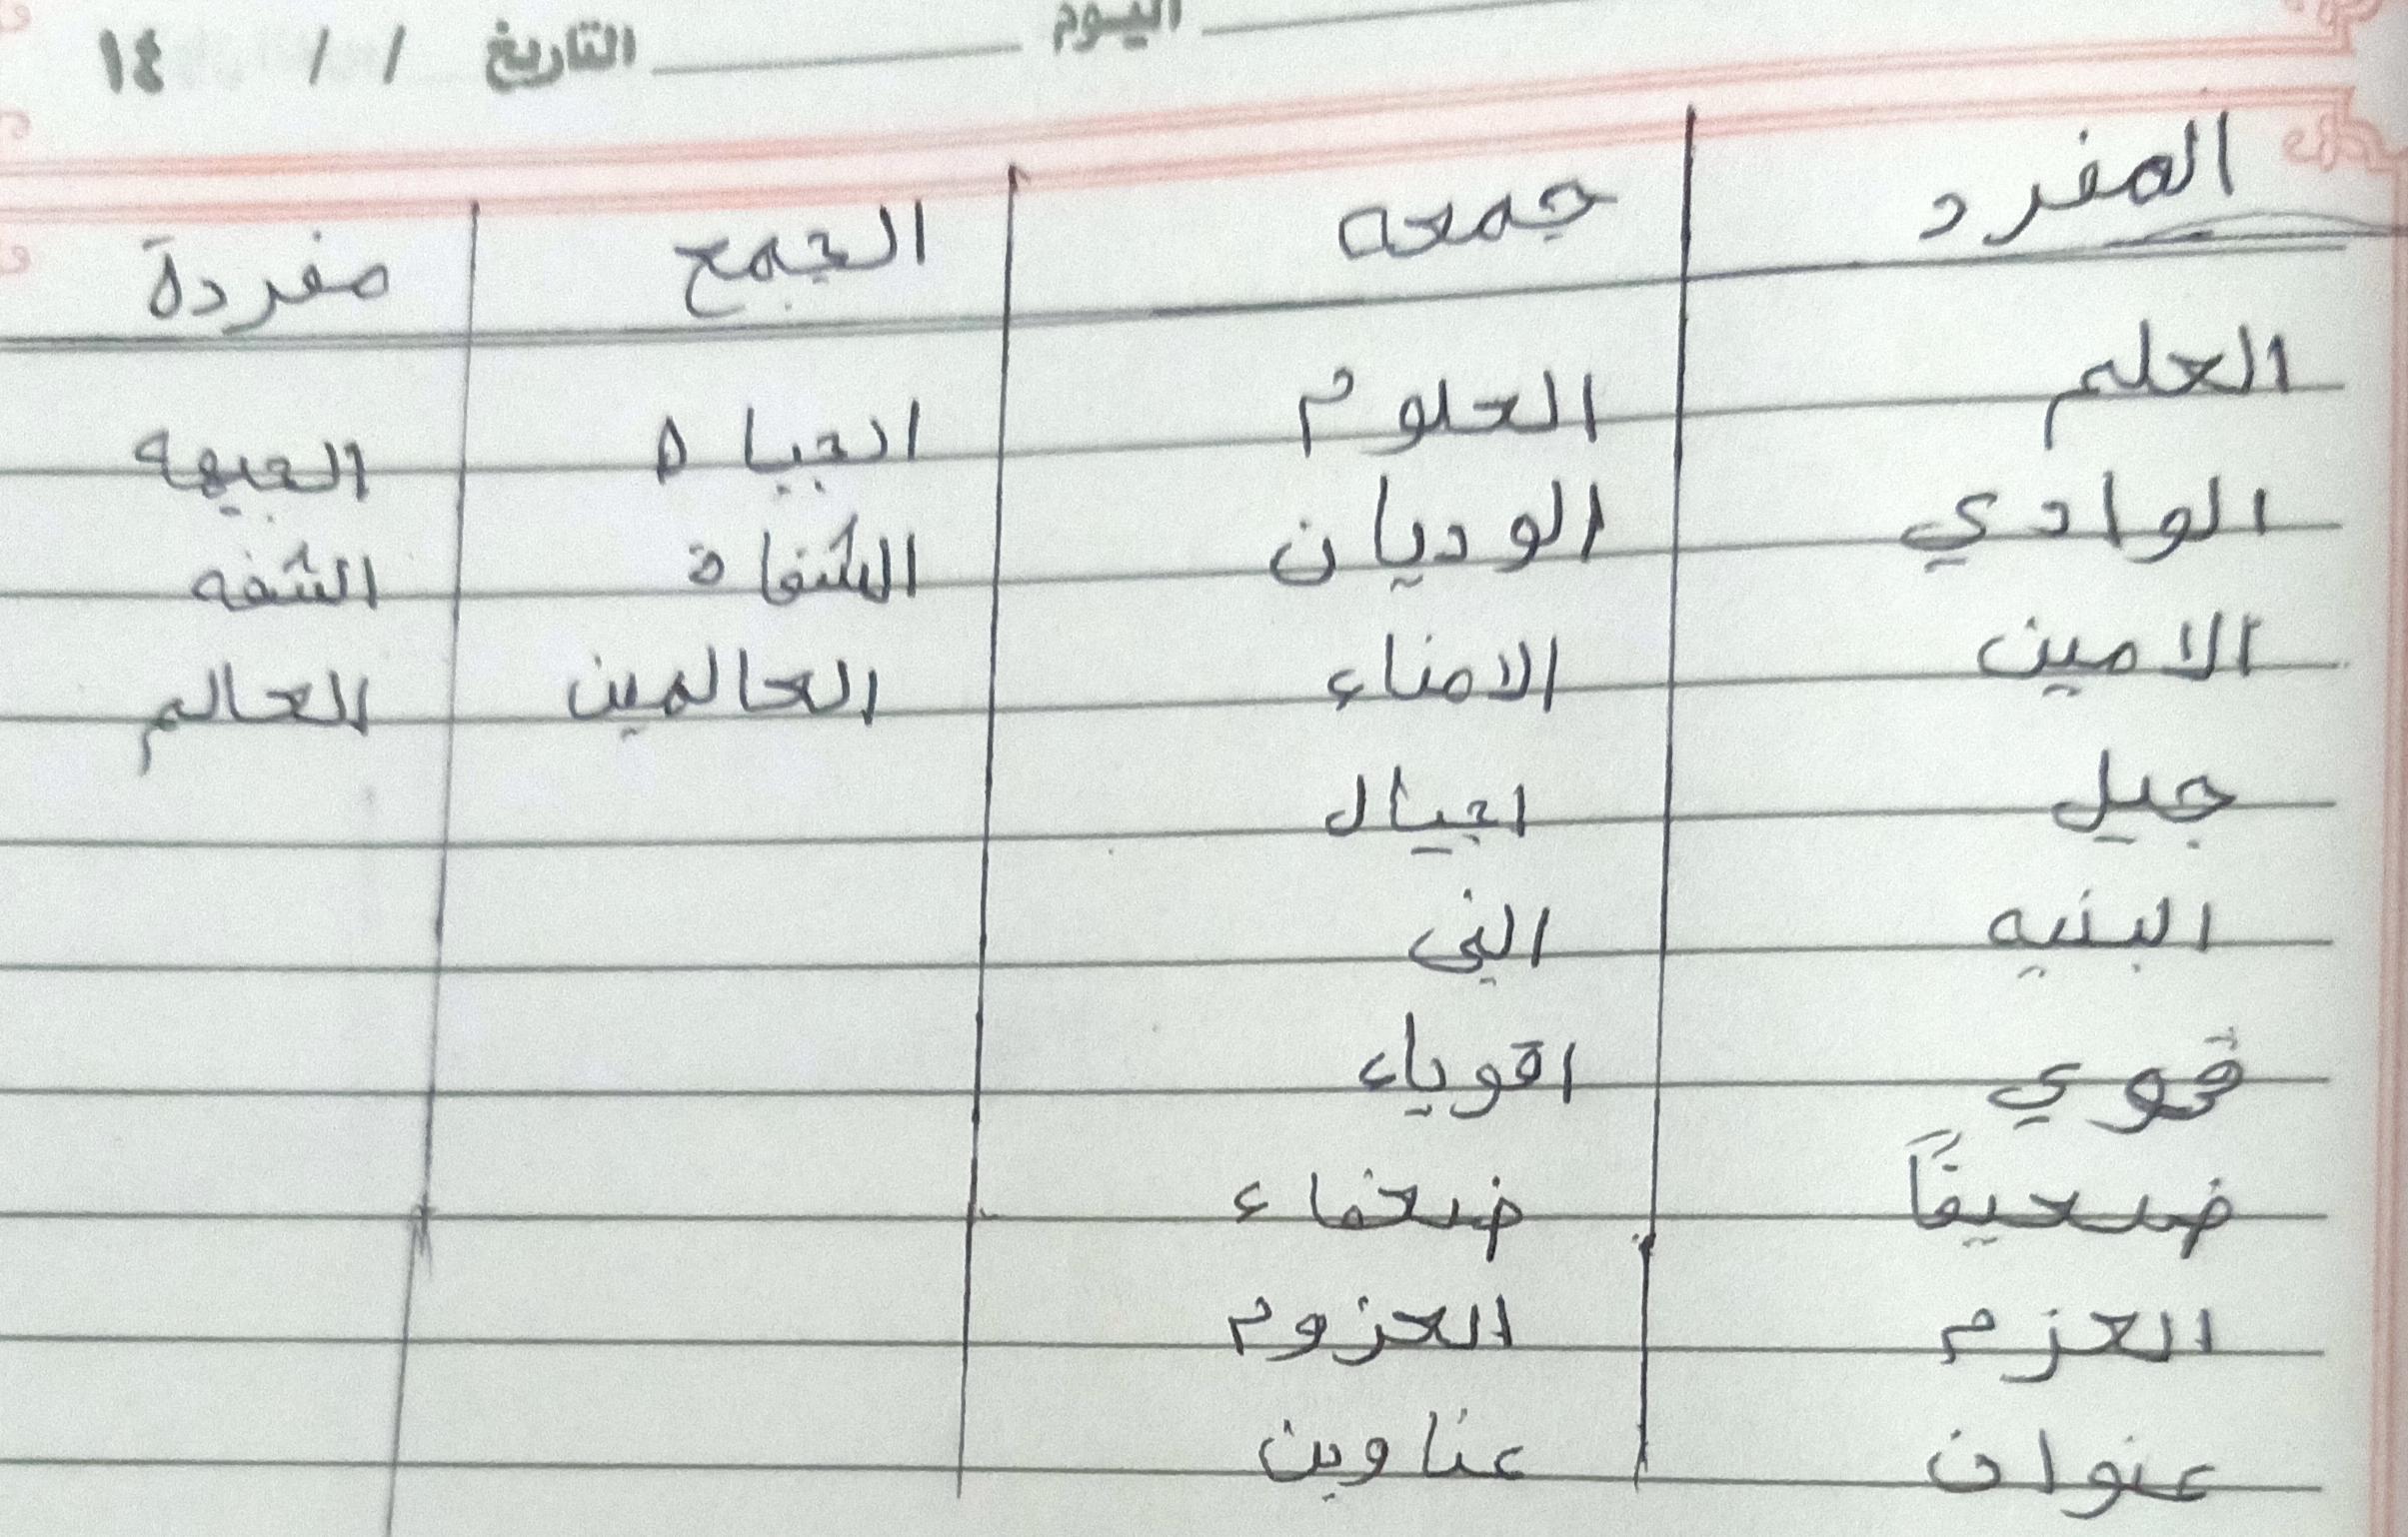 اليوم التاريخ / / ١٤
المفرد جمعه الجمع مفردة
العلم العلوم الجباه الجبهه
الوادي الوديان الشفاة الشفه
الامين الامناء العالمين العالم
جيل اجيال
البنيه البنى
قوي اقوياء
ضعيفاً ضعفاء
العزم العزوم
عنوان عناوين